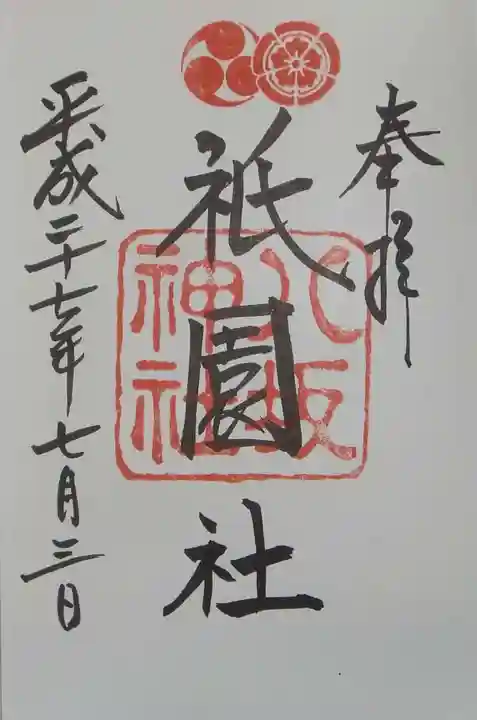 奉拝
祇園社
八坂
神社
平成二十七年七月三日